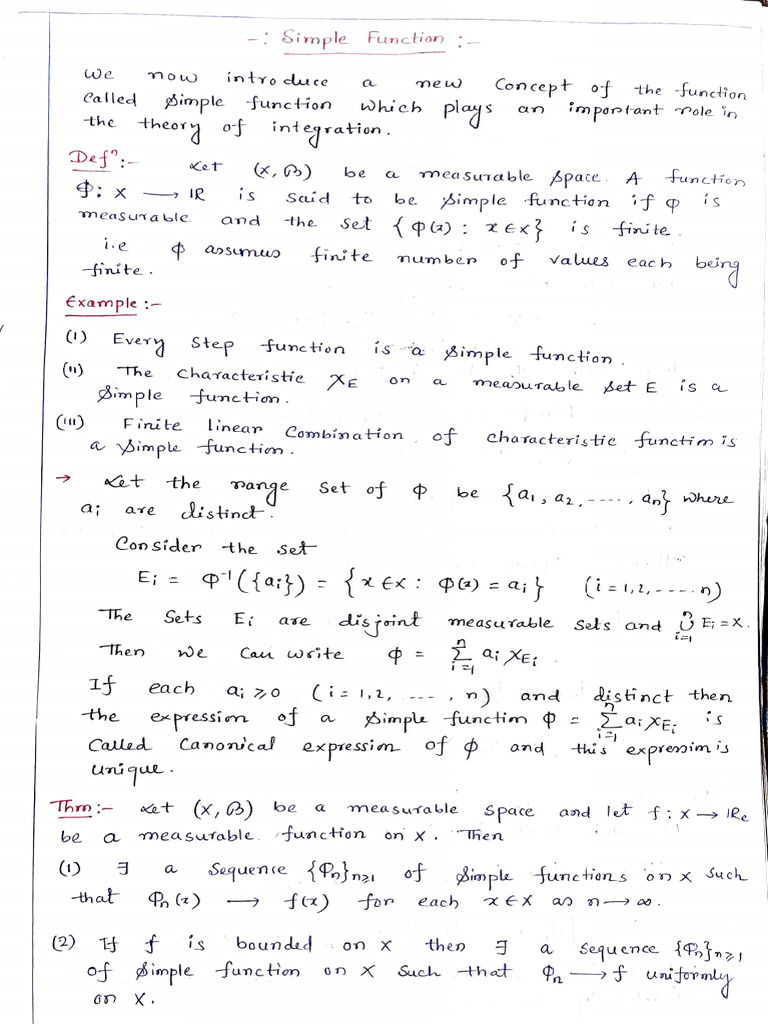 -: Simple Function :-
We now introduce a new Concept of the function
Called Simple function which plays an important role in
the theory of integration.
Defⁿ:- Let (X, B) be a measurable space. A function
Φ: X → IR is said to be simple function if φ is
measurable and the set { φ(x) : x ∈ X } is finite.
i.e φ assumus finite number of values each being
finite.
Example :-
(I) Every Step function is a Simple function.
(II) The Characteristic χ_E on a measurable set E is a
Simple function.
(III) Finite linear Combination of characteristic function is
a Simple function.
→ Let the range set of φ be {a₁, a₂, ----, aₙ} where
aᵢ are distinct.
Consider the set
Eᵢ = φ⁻¹({aᵢ}) = { x ∈ X : φ(x) = aᵢ } (i = 1, 2, ---- n)
The Sets Eᵢ are disjoint measurable sets and ∪ⁿᵢ₌₁ Eᵢ = X.
Then we Can write φ = Σⁿᵢ₌₁ aᵢ χ_Eᵢ
If each aᵢ ⩾ 0 (i = 1, 2, ---, n) and distinct then
the expression of a simple function φ = Σⁿᵢ₌₁ aᵢ χ_Eᵢ is
Called Canonical expression of φ and this expression is
unique.
Thm:- Let (X, B) be a measurable space and let f : X → IRe
be a measurable function on X. Then
(1) ∃ a sequence {Φₙ}ₙ≥₁ of simple functions on X such
that Φₙ(x) → f(x) for each x ∈ X as n → ∞.
(2) If f is bounded on X then ∃ a sequence {Φₙ}ₙ≥₁
of simple function on X such that Φₙ → f uniformly
on X.